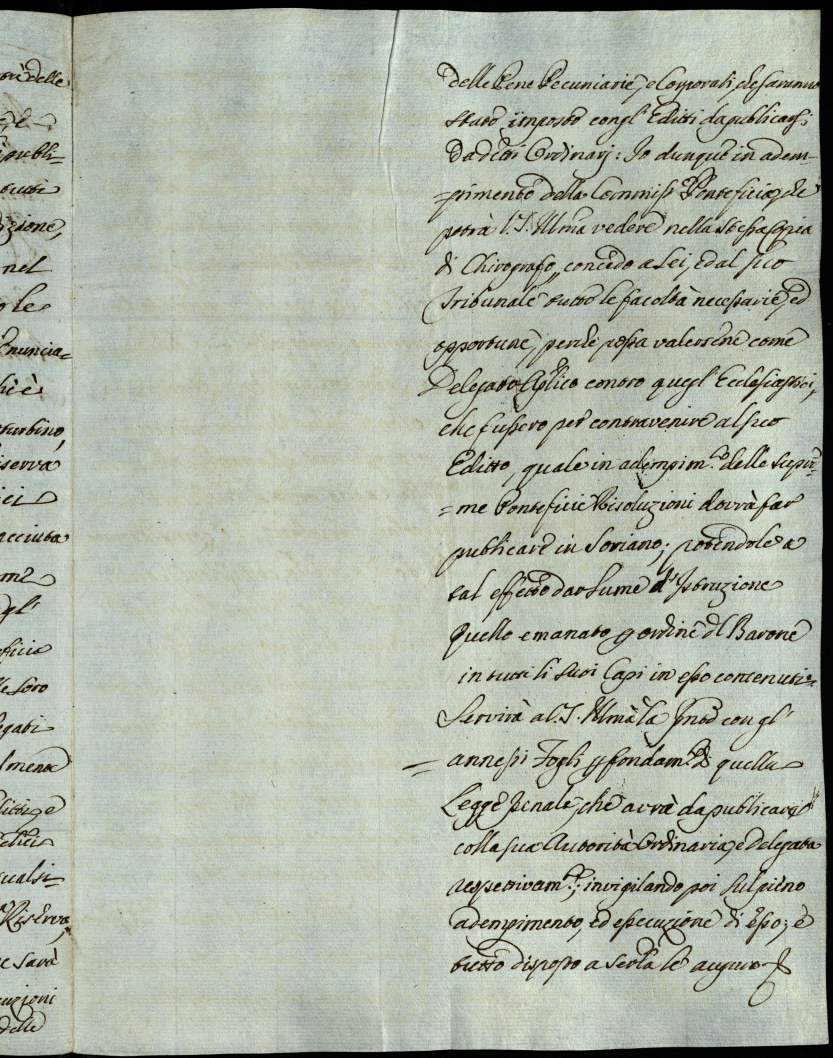 ori delle
publi-
tutti
izione,
nel
o le
Enuncia=
turbino,
iserva
ici
acciuta
gl'
eficie
le loro
egati
lmena
qualsi-
Riserva
e sarà
uzioni
delle
delle Pene Pecuniarie, e Corporali, che saranno
stato imposto con gl'Editti da publicarsi
Da detti Ordinarj: Io dunque in adem-
=primento della Commiss.e Pontificia, che
potrà V.S. Illma vedere nella stessa Copia
di Chirografo, concedo a Lei, ed al suo
Tribunale tutte le facoltà necessarie, ed
opportune, perchè possa valersene come
Delegato Aplico contro quegl'Ecclesiastici,
che fussero per contravenire al suo
Editto, quale in adempim.to delle supre-
=me Pontificie Risoluzioni dovrà far
publicare in Soriano; potendole a
tal effetto dar lume d'Istruzione
Quello emanato p ordine dl Barone
in tutti li suoi Capi in esso contenuti=
Servirà a V.S. Illma la pnte con gl'
= annessi Fogli p fondam.to di quella
Legge penale, che avrà da publicare
colla sua Autorità Ordinaria, e Delegata
respettivam.e; invigilando poi sul pieno
adempimento, ed esecuzione di Esso; e
tutto disposto a serla le auguro